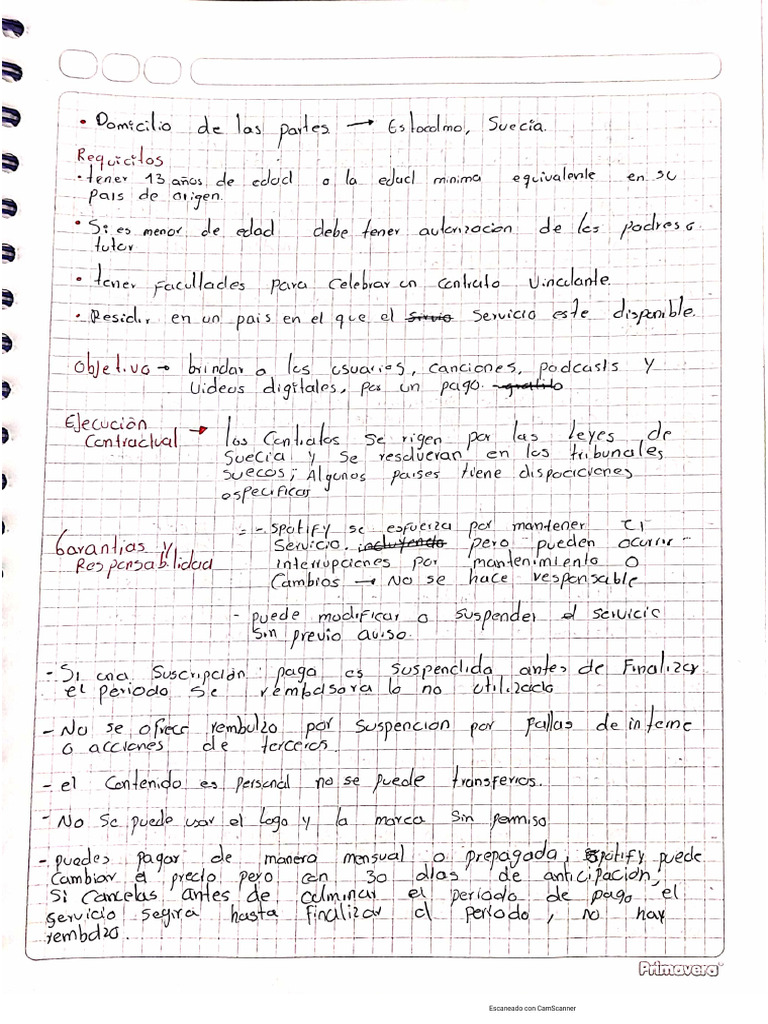 • Domicilio de las partes → Estocolmo, Suecia.
Requicitos
• tener 13 años de edad o la edad minima equivalente en su
pais de origen.
• Si es menor de edad debe tener autorizacion de los padres o
tutor
• tener facultades para celebrar un contrato vinculante.
• Residir en un pais en el que el servicio este disponible.
Objetivo → brindar a los usuarios, canciones, podcasts y
videos digitales, por un pago.
Ejecución → los contratos se rigen por las leyes de
contractual Suecia y se resolveran en los tribunales
suecos; Algunos paises tiene dispociciones
especificas
Garantias y = - spotify se esfuerza por mantener el
Responsabilidad servicio. pero pueden ocurrir
interrupciones por mantenimiento o
cambios → No se hace responsable
- puede modificar o suspender el servicio
sin previo aviso.
- Si una suscripción pago es suspendida antes de finalizar
el periodo se rembolsara lo no utilizado
- No se ofrece rembulzo por suspención por fallas de interne
o acciones de terceros.
- el contenido es personal no se puede transferios.
- No se puede usar el logo y la marca sin permiso
- puedes pagar de manera mensual o prepagada, spotify puede
cambiar el precio pero con 30 dias de anticipación,
Si cancelas antes de culminar el periodo de pago, el
servicio segira hasta finalizar el periodo, no hay
rembolzo.
Primavera
Escaneado con CamScanner